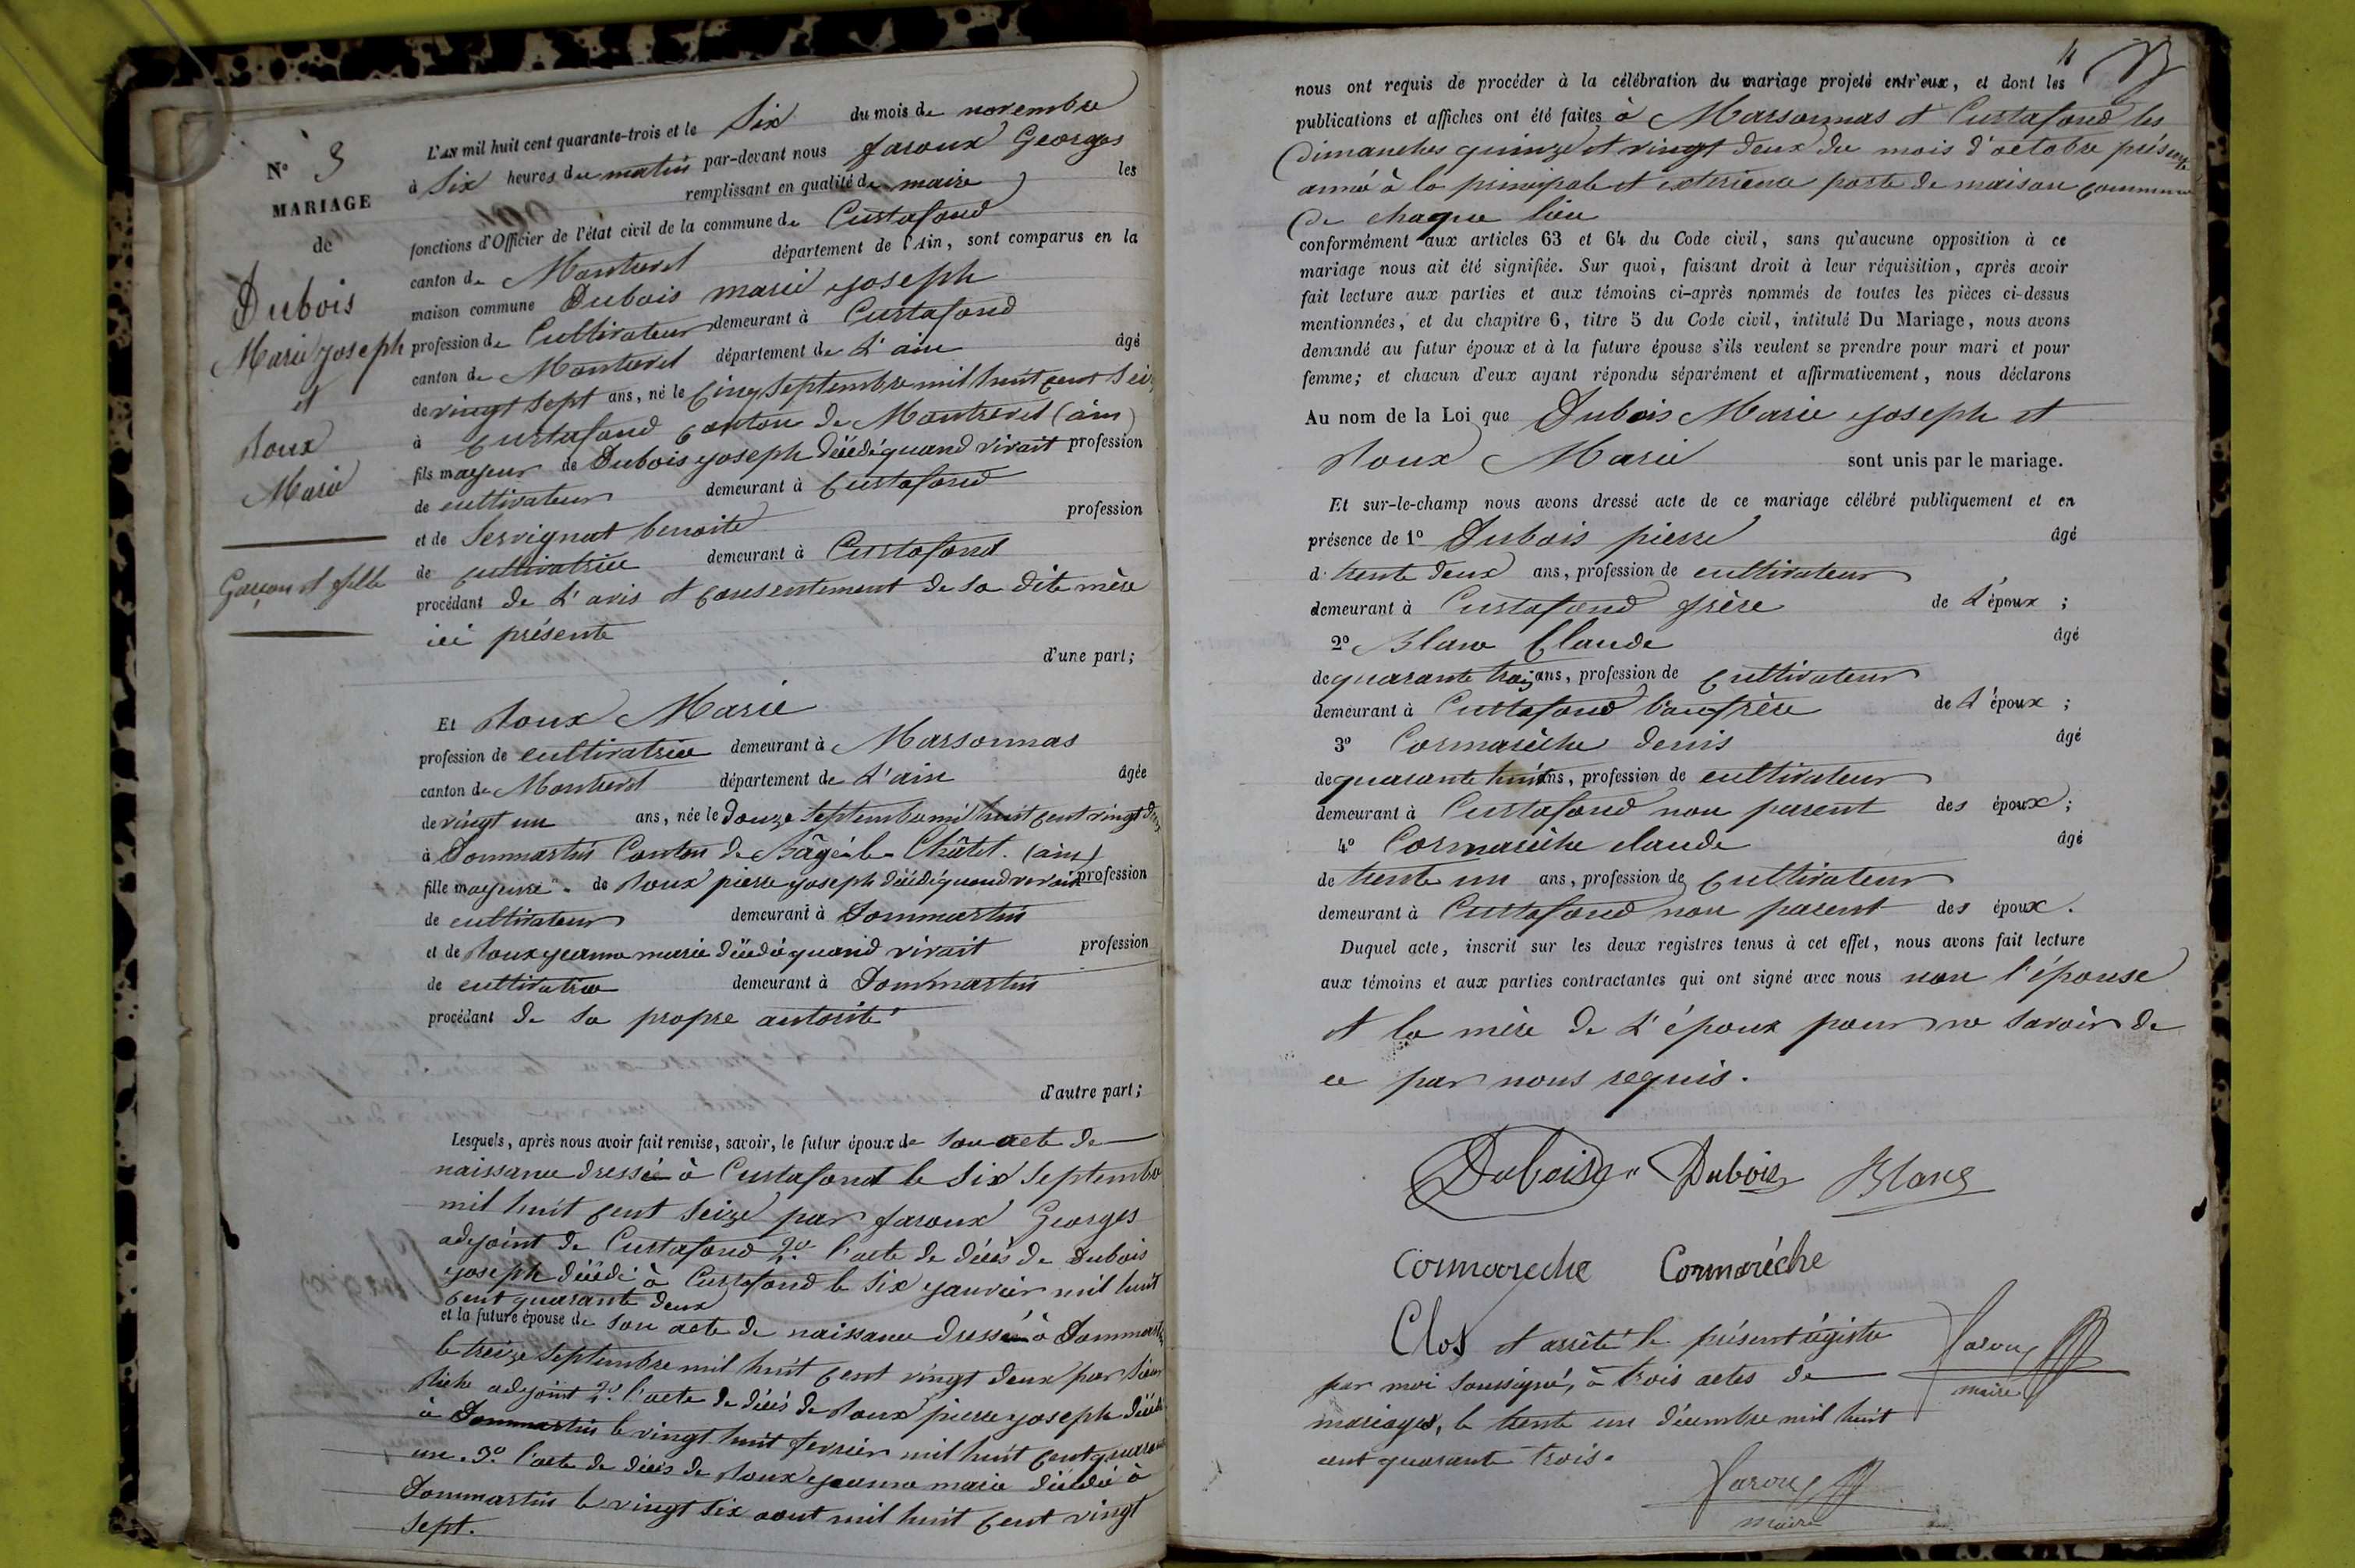 N° 3
MARIAGE
de
Dubois
Marie joseph
et
Roux
Marie
Garçon et fille
L'AN mil huit cent quarante-trois et le Six du mois de novembre
à Six heures du matin par-devant nous faroux Georges
remplissant en qualité de maire les
fonctions d'Officier de l'état civil de la commune de Curtafond
canton de Montrevel département de l'Ain, sont comparus en la
maison commune Dubois marie joseph
profession de Cultivateur demeurant à Curtafond
canton de Montrevel département de L'ain âgé
de vingt sept ans, né le cinq septembre mil huit cent seize
à Curtafond canton de Montrevel (ain)
fils mayeur de Dubois joseph décédé quand vivait profession
de cultivateur demeurant à Curtafond
et de Servignat benoite profession
de cultivatrice demeurant à Curtafond
procédant de L'avis et consentement de sa dite mère
ici présente
d'une part;
Et Roux Marie
profession de cultivatrice demeurant à Marsonnas
canton de Montrevel département de L'ain âgée
de vingt un ans, née le douze septembre mil huit cent vingt deux
à Dommartin Canton de Bâgé le Châtel (ain)
fille mayeure de Roux pierre joseph décédé quand vivait profession
de cultivateur demeurant à Dommartin
et de Roux jeanne marie décédé quand vivait profession
de cultivatrice demeurant à Dommartin
procédant de sa propre autorité
d'autre part;
Lesquels, après nous avoir fait remise, savoir, le futur époux de son acte de
naissance dressé à Curtafond le six septembre
mil huit cent seize par faroux Georges
adjoint de Curtafond 2° l'acte de décès de Dubois
joseph décédé à Curtafond le six janvier mil huit
cent quarante deux
et la future épouse de son acte de naissance dressé à Dommartin
le treize septembre mil huit cent vingt deux par
adjoint 2° l'acte de décès de Roux pierre joseph décédé
à Dommartin le vingt huit fevrier mil huit cent quarante
un. 3° l'acte de décès de Roux jeanne marie décédé à
Dommartin le vingt six aout mil huit cent vingt
sept.
nous ont requis de procéder à la célébration du mariage projeté entr'eux, et dont les
publications et affiches ont été faites à Marsonnas et Curtafond les
dimanches quinze et vingt deux du mois d'octobre présente
année à la principale et exterieure porte de maison commune
de chaque lieu
conformément aux articles 63 et 64 du Code civil, sans qu'aucune opposition à ce
mariage nous ait été signifiée. Sur quoi, faisant droit à leur réquisition, après avoir
fait lecture aux parties et aux témoins ci-après nommés de toutes les pièces ci-dessus
mentionnées, et du chapitre 6, titre 5 du Code civil, intitulé Du Mariage, nous avons
demandé au futur époux et à la future épouse s'ils veulent se prendre pour mari et pour
femme; et chacun d'eux ayant répondu séparément et affirmativement, nous déclarons
Au nom de la Loi que Dubois Marie joseph et
Roux Marie sont unis par le mariage.
Et sur-le-champ nous avons dressé acte de ce mariage célébré publiquement et en
présence de 1° Dubois pierre âgé
d. trente deux ans, profession de cultivateur
demeurant à Curtafond frère de L'époux ;
2° Blanc Claude âgé
de quarante trois ans, profession de cultivateur
demeurant à Curtafond beaufrère de L'époux ;
3° Cormarèche denis âgé
de quarante huit ans, profession de cultivateur
demeurant à Curtafond non parent des époux ;
4° Cormarèche claude âgé
de trente un ans, profession de cultivateur
demeurant à Curtafond non parent des époux.
Duquel acte, inscrit sur les deux registres tenus à cet effet, nous avons fait lecture
aux témoins et aux parties contractantes qui ont signé avec nous non l'épouse
et la mère de L'époux pour ne savoir de
ce par nous requis.
Dubois Dubois Blanc
Cormareche Cormaréche
Clos et arrêté le présent régistre
par moi soussigné, à trois actes de
mariages, le trente un décembre mil huit
cent quarante trois.
Faroux
maire
Faroux
maire